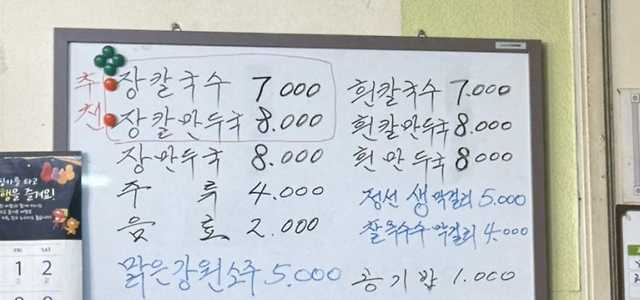 추천
장칼국수 7.000
장칼만두국 8.000
장만두국 8.000
주류 4.000
음료 2.000
맑은강원소주 5.000
흰칼국수 7.000
흰칼만두국 8.000
흰만두국 8000
정선 생막걸리 5.000
찰옥수수 막걸리 4.000
공기밥 1.000
즐겨요!
FRI SAT
1 2